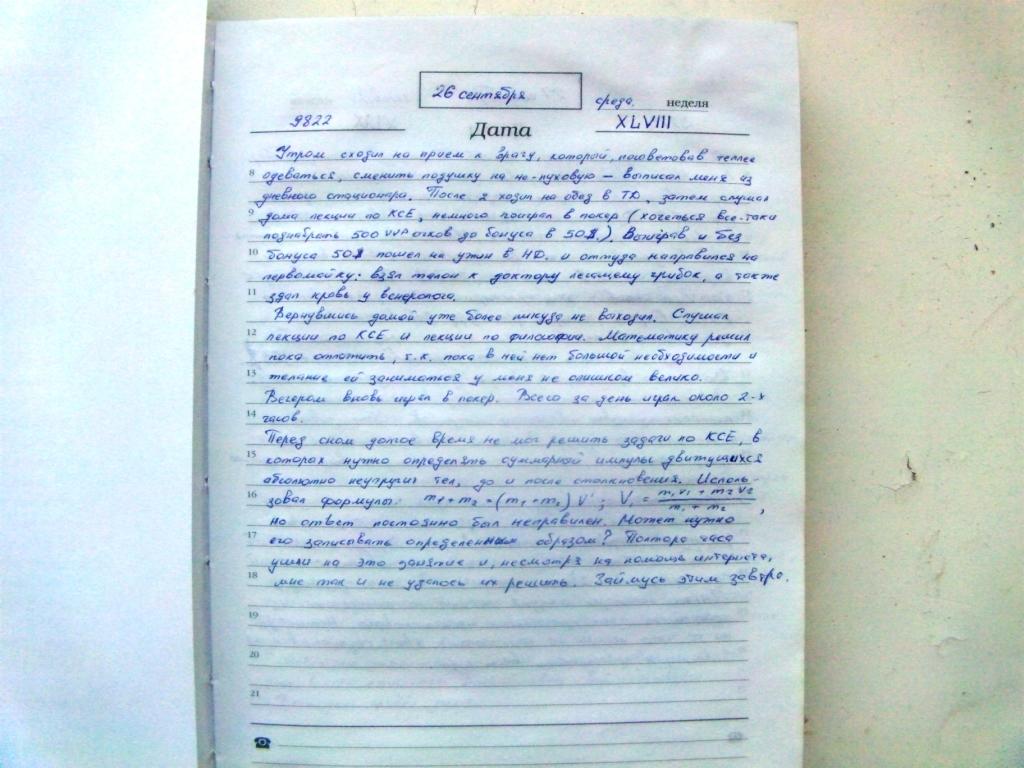 26 сентября
среда. неделя
9822 Дата XLVIII
Утром сходил на прием к врачу, который, посоветовав теплее
8 одеваться, сменить подушку на не-пуховую – выписал меня из
дневного стационара. После 2 ходил на обед в ТД, затем слушал
9 дома лекции по КСЕ, немного поиграл в покер (хочеться все-таки
поднабрать 500 VVP очков до бонуса в 50$.). Выиграв и без
10 бонуса 50$ пошел на ужин в НД. и оттуда направился на
первомайку: взял талон к доктору лечащему грибок, а также
11 сдал кровь у венеролога.
Вернувшись домой уже более никуда не выходил. Слушал
12 лекции по КСЕ и лекции по философии. Математику решил
пока отложить, т.к. пока в ней нет большой необходимости и
13 желание ей заниматься у меня не слишком велико.
Вечером вновь играл в покер. Всего за день играл около 2-х
14 часов.
Перед сном долгое время не мог решить задачи по КСЕ, в
15 которых нужно определять суммарный импульс двигущихся
абсолютно неупругих тел, до и после столкновения. Исполь-
16 зовал формулы: m₁+m₂=(m₁+m₂) V'; V = m₁v₁ + m₂v₂ / m₁ + m₂ ,
но ответ постоянно был неправилен. Может нужно
17 его записывать определенным образом? Полтора часа
ушли на это занятие и, несмотря на помощь интернета,
18 мне так и не удалось их решить. Займусь этим завтра.
19
20
21